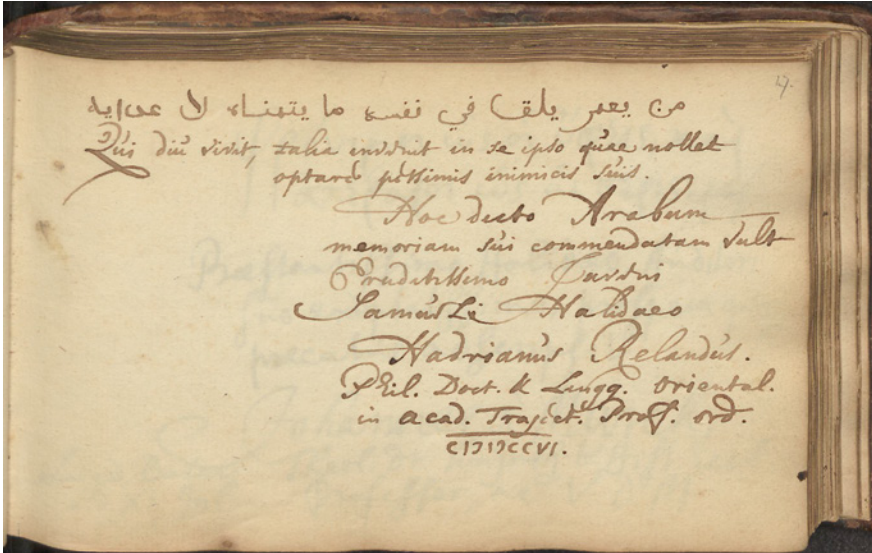 47.
من يعمر يلقا في نفسه ما يتمناه لا عدايه
Qui diu vivit, talia invenit in se ipso quae nollet
optare pessimis inimicis suis.
Hoc dicto Arabum
memoriam sui commendatam vult
Eruditissimo Juveni
Samueli Halidaeo
Hadrianus Relandus.
Phil. Doct. & Lingg. Oriental.
in acad. Traject. Prof. ord.
CIƆIƆCCVI.